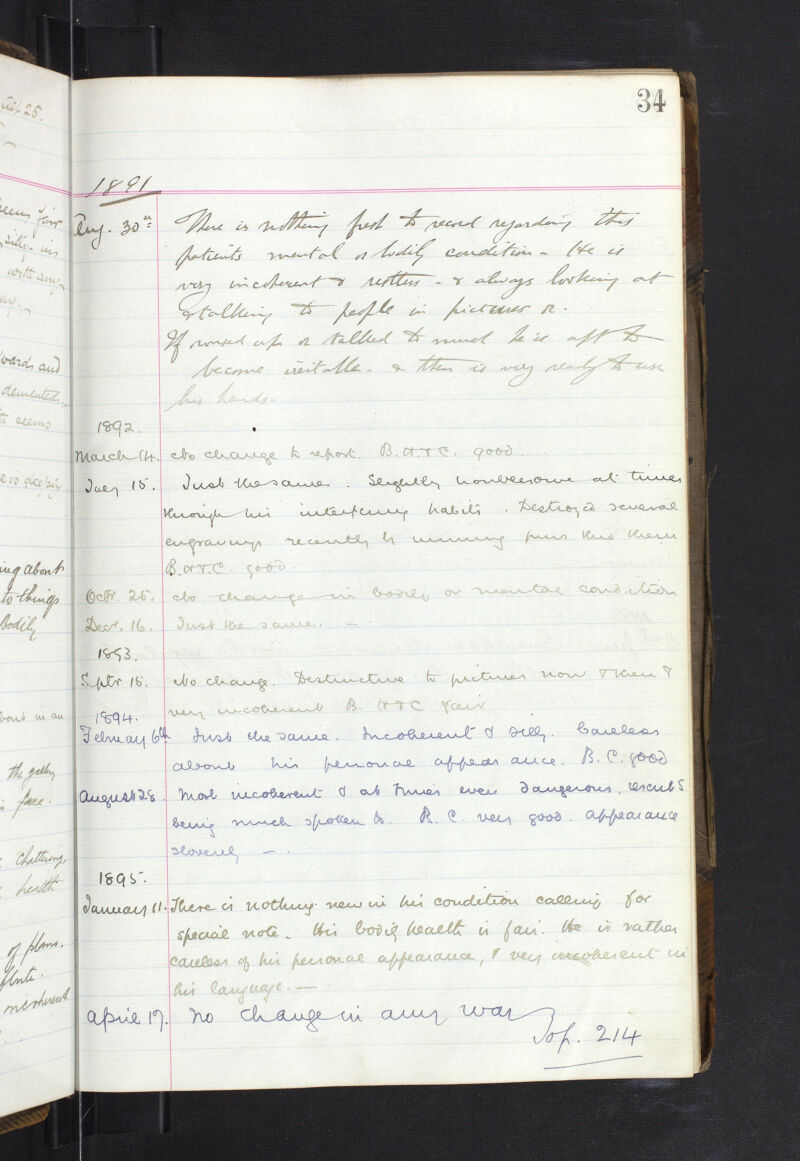 34
1891
Aug. 30th There is nothing fresh to record regarding this
patients mental or bodily condition - He is
very incoherent & restless - & always looking at
& talking to people in pictures &c.
If roused up or talked to much he is apt to
become irritable - & then is very ready to use
his hands.
1892.
March 14. No change to report. B.H.&C. good.
July 15. Just the same. Slightly troublesome at times
through his interfering habits. Destroyed several
engravings recently by running pins thro them
B.H.&C. good.
Octr. 25. No change in bodily or mental condition
Decr. 16. Just the same. —
1893.
Septr 18. No change. Destructive to pictures now & then &
very incoherent B. H & C fair
1894.
February 6th Just the same. Incoherent & silly. Careless
about his personal appearance. B. C. good
August 28. Most incoherent & at times even dangerous, resents
being much spoken to. B. C. very good. appearance
slovenly —.
1895.
January 11. There is nothing new in his condition calling for
special note. His bodily health is fair. He is rather
careless of his personal appearance, & very incoherent in
his language. —
April 17. No change in any way
214
Oct 25.
seems fair
silly in
with any
wards and
demented.
seems
he is deeply
ing about
to things
Bodily
about in an
the gallery
face.
chattering
health
of plans.
incoherent